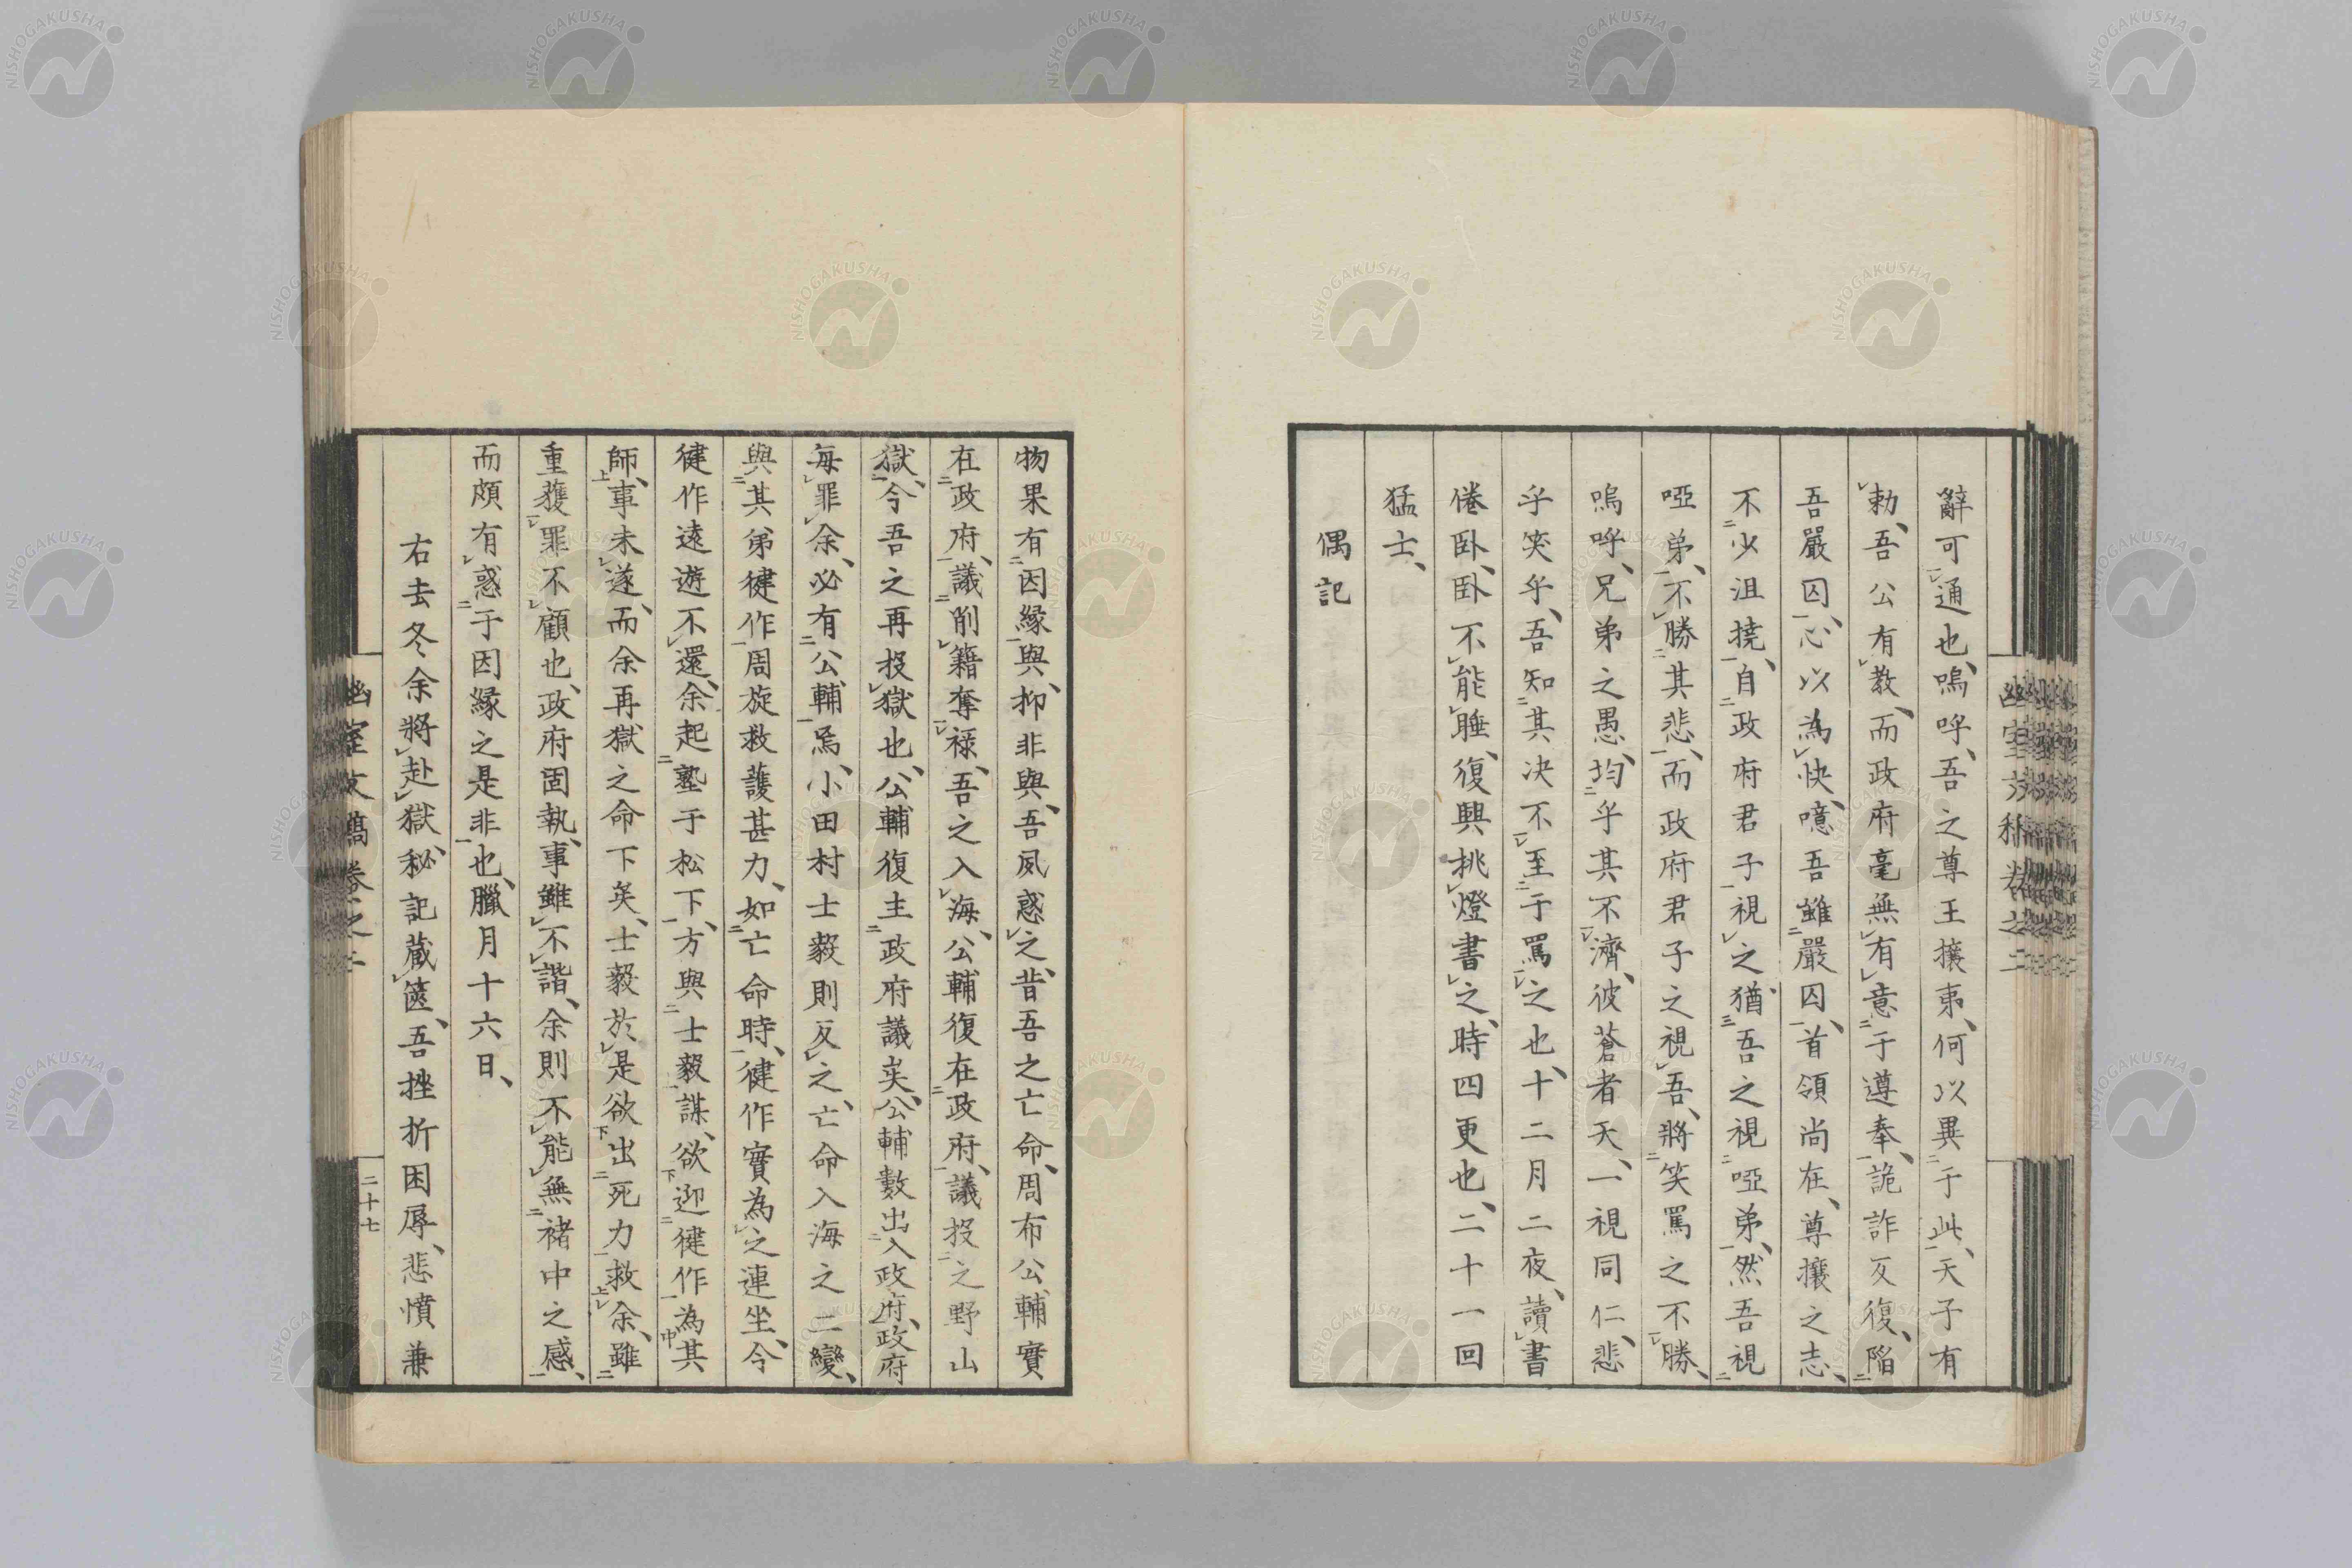 辭可通也、嗚呼、吾之尊王攘夷、何以異于此、天子有
勅、吾公有教、而政府毫無有意于遵奉、詭詐反復、陷
吾嚴囚、心以為快、噫吾雖嚴囚、首領尚在、尊攘之志、
不少沮撓、自政府君子視之、猶吾之視啞弟、然吾視
啞弟、不勝其悲、而政府君子之視吾、將笑罵之不勝、
嗚呼、兄弟之愚、均乎其不濟、彼蒼者天、一視同仁、悲
乎笑乎、吾知其決不至于罵之也、十二月二夜、讀書
倦臥、臥不能睡、復興挑燈書之、時四更也、二十一回
猛士、
偶記
物果有因縁與、抑非與、吾夙惑之、昔吾之亡命、周布公輔實
在政府、議削籍奪祿、吾之入海、公輔復在政府、議投之野山
獄、今吾之再投獄也、公輔復主政府議矣、公輔數出入政府、政府
每罪余、必有公輔焉、小田村士毅則反之、亡命入海之二變、
與其弟健作周旋救護甚力、如亡命時、健作實為之連坐、今
健作遠遊不還、余起塾于松下、方與士毅謀、欲迎健作為其
師、事未遂、而余再獄之命下矣、士毅於是欲出死力救余、雖
重獲罪不顧也、政府固執、事雖不諧、余則不能無褚中之感、
而頗有惑于因縁之是非也、臘月十六日、
右去冬余將赴獄、秘記藏篋、吾挫折困辱、悲憤兼
幽室文稿卷之二
二十七